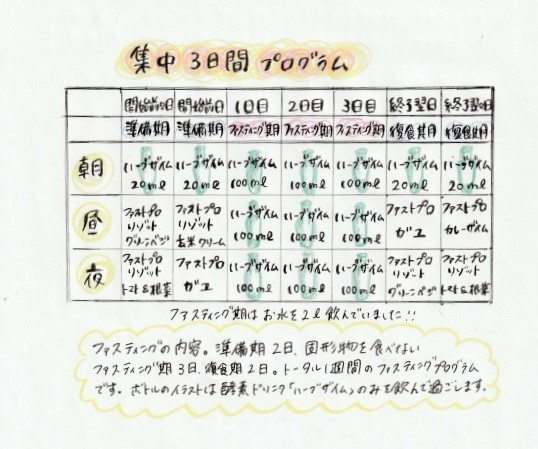 集中 3日間 プログラム
開始前々日 開始前日 1日目 2日目 3日目 終了翌日 終了翌々日
準備期 準備期 ファスティング期 ファスティング期 ファスティング期 復食期 復食期
朝 ハーブザイム 20ml ハーブザイム 20ml ハーブザイム 100ml ハーブザイム 100ml ハーブザイム 100ml ハーブザイム 20ml ハーブザイム 20ml
昼 ファストプロ リゾット グリーンベジ ファストプロ リゾット 玄米クリーム ハーブザイム 100ml ハーブザイム 100ml ハーブザイム 100ml ファストプロ ガユ ファストプロ カレーザイム
夜 ファストプロ リゾット トマト&根菜 ファストプロ ガユ ハーブザイム 100ml ハーブザイム 100ml ハーブザイム 100ml ファストプロ リゾット グリーンベジ ファストプロ リゾット トマト&根菜
ファスティング期は お水を2l飲んでいました!!
ファスティングの内容。準備期 2日、固形物を食べない
ファスティング期 3日、復食期 2日。トータル1週間のファスティングプログラム
です。ボトルのイラストは酵素ドリンク「ハーブザイム」のみを飲んで過ごします。